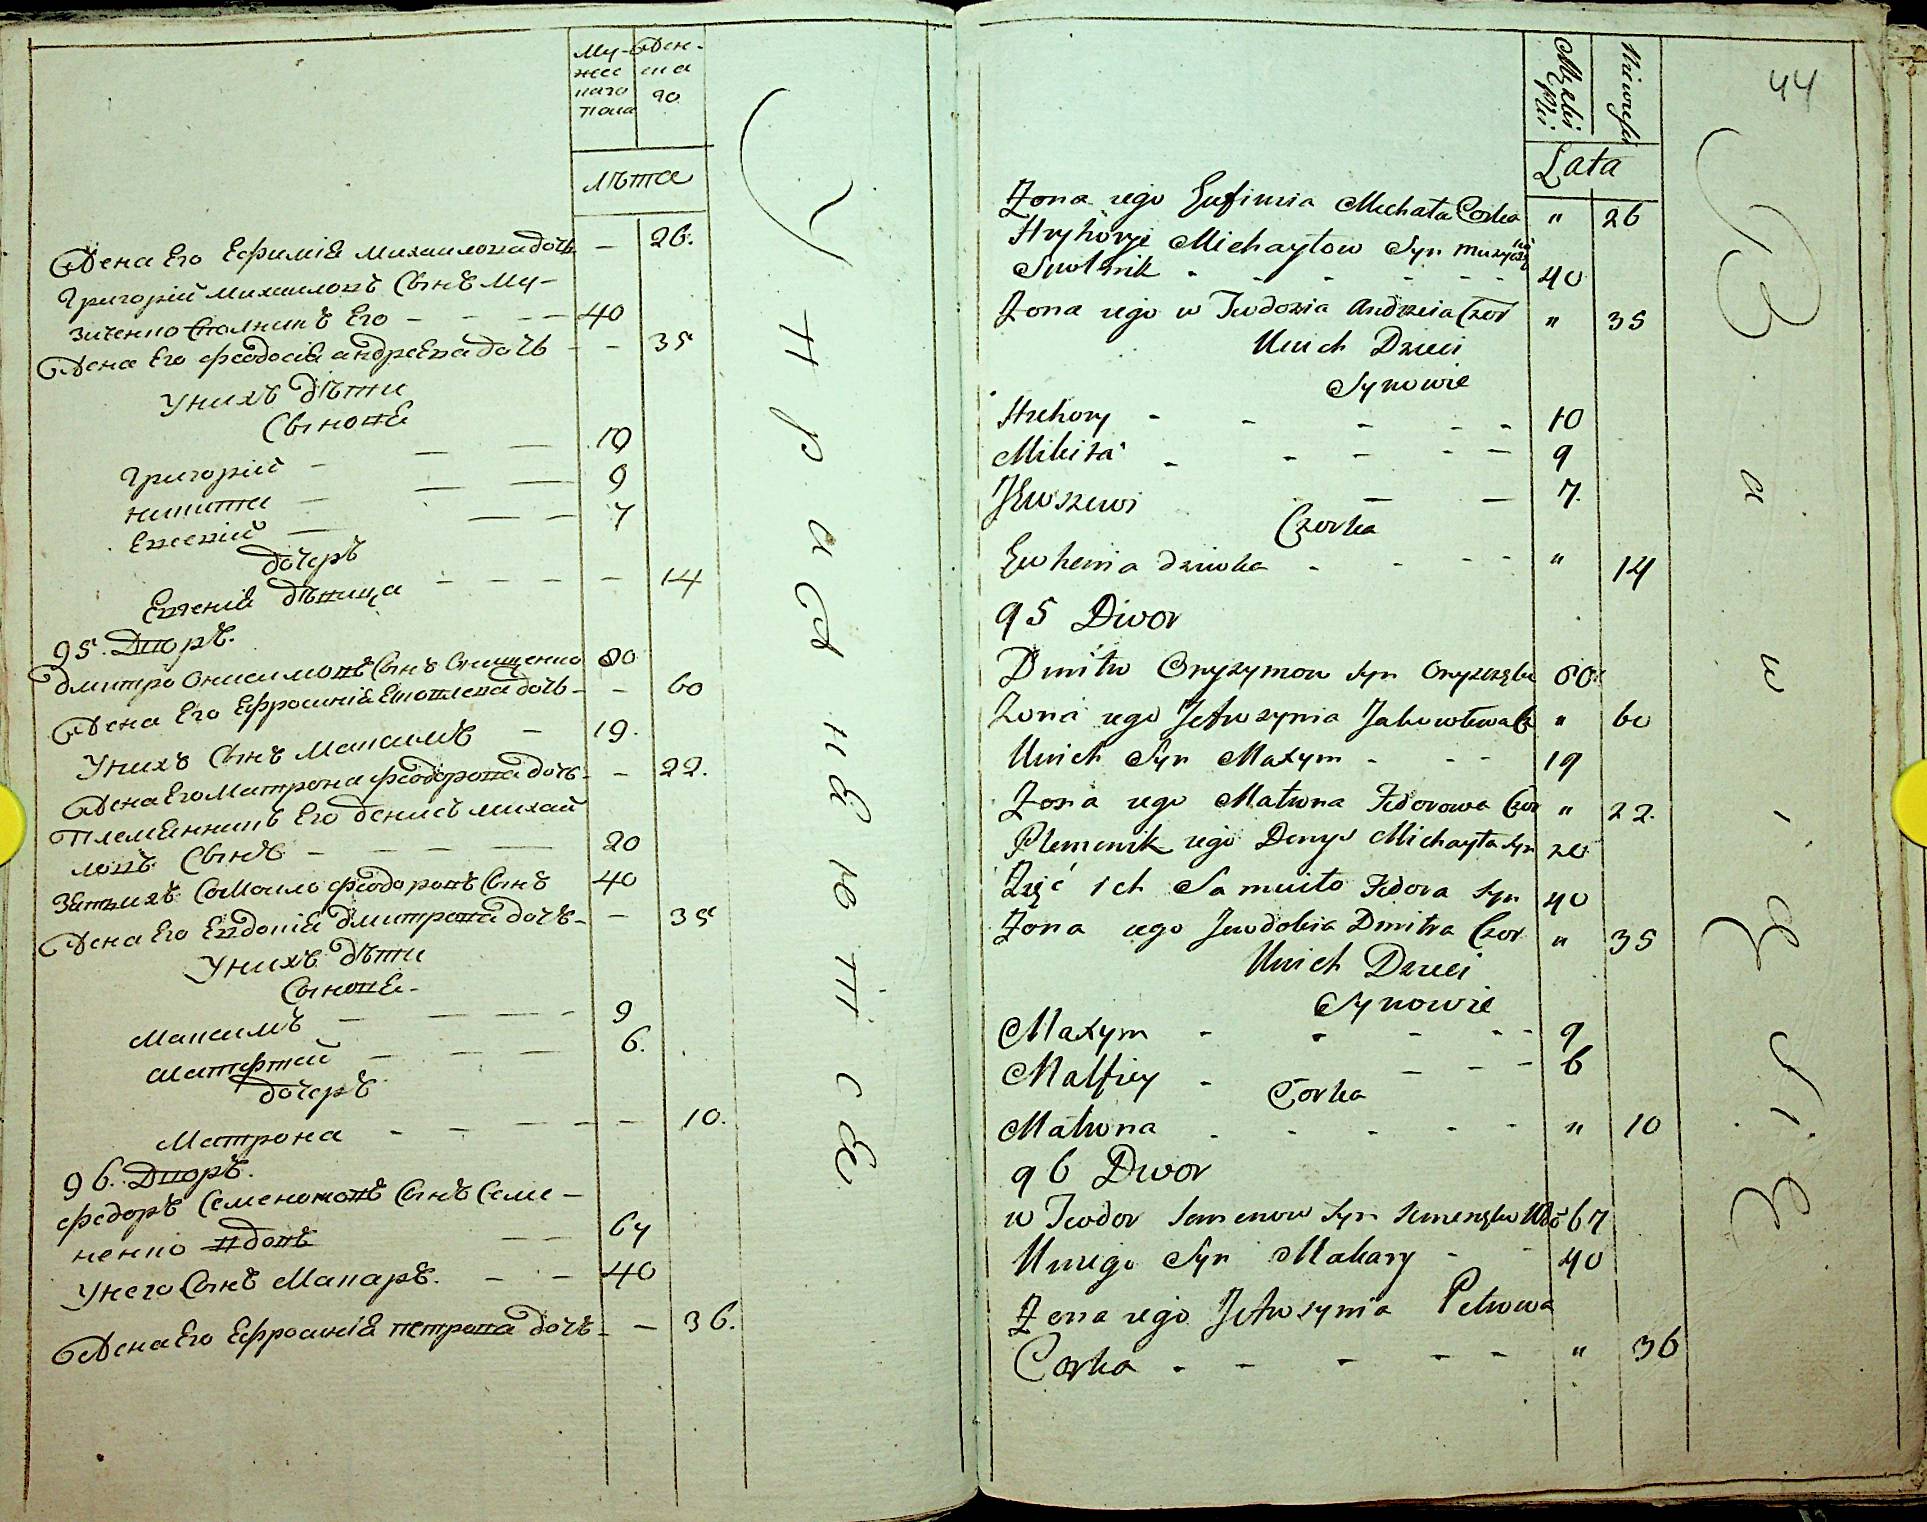 Му-
жес
каго
пола
Жен-
ска
го
лѣта
Жена Его Ефимія михаилова дочь — 26.
Григорій михаиловъ Сынъ Му-
зиченко Столникъ Его — — — 40
Жена Его феодосія андреева дочь — — 35
Унихъ дѣти
Сыновя
Григорій — — — 10
никита — — — 9
Евсевій — — — 7
дочерь
Евгенія дѣвица — — — — — 14
95. Дворъ.
дмитро Онисимовъ Сынъ Онищенко 80
Жена Его Ефросинія Яковлева дочь — — 60
Унихъ Сынъ Максимъ — 19.
Жена Его Матрона феодорова дочь — — 22.
Племянникъ Его денисъ михай
ловъ Сынъ — — — — 20
Зять ихъ Самоило феодоровъ Сынъ 40
Жена Его Евдокія дмитрова дочь — — 35
Унихъ дѣти
Сыновя
Максимъ — — — — 9
Матфтей — — — — 6.
дочерь
Матрона — — — — — 10.
96. Дворъ.
федоръ Семеновъ Сынъ Семе-
ненко вдовъ — — 67
Унего Сынъ Макаръ. — — 40
Жена Его Ефросинія петрова дочь — — 36.
У н р а ж н я ю т с я
44
Męzki
Płci
Niewieści
Lata
Żona iego Eufimia Michała Corka " 26
Hryhoryi Michayłow Syn Muzycz
Suolnik - - - - - 40
Żona iego w Teodozia Andrzeia Czor " 35
Unich Dzieci
Synowie
Hrehory - - - - - 10
Mikita - - - - - 9
Jewszewi — — 7.
Czorka
Euhenia dziwka - - - - " 14
95 Dwor
Dmitro Onyzymow syn Onyszczęko 80.
Żona iego Jefrozynia Jakowlewa Cz " 60
Unich Syn Maxym - - - 19
Żona iego Matrona Fedorowa Czor " 22.
Plemenik iego Denys Michayła syn 20
Zięć ich Samuiło Fedora Syn 40
Żona iego Jewdokia Dmitra Czor " 35
Unich Dzieci
Synowie
Maxym - - - - - 9
Matfiey - - - - 6
Corka
Matrona - - - - - " 10
96 Dwor
w Teodor Semenow syn Semenęko Wdo 67
Uniego Syn Makary - - 40
Żona iego Jefrozynia Petrowa
Corka - - - - - " 36